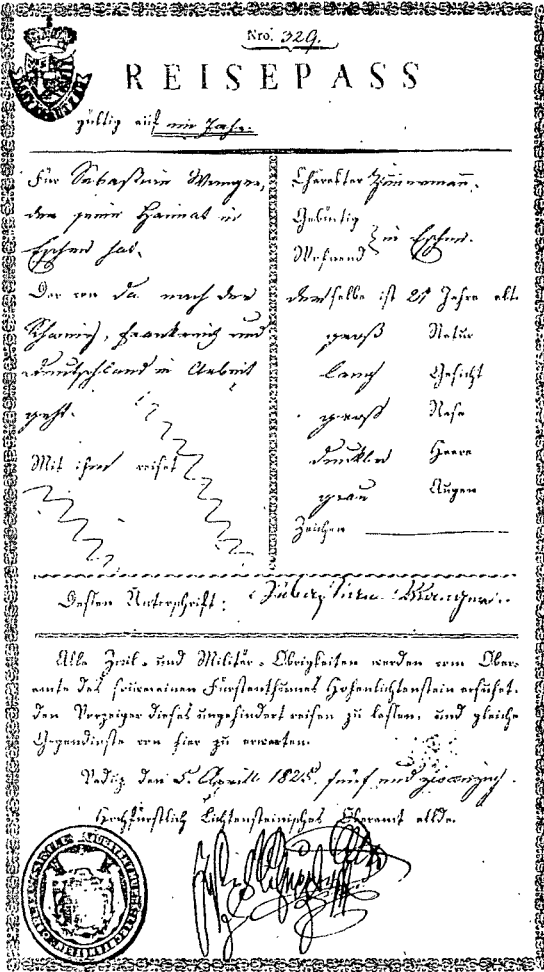 Nro. 329.
REISEPASS
gültig auf ein Jahr.
Für Sebastian Wanger,
der seine Haimat in
Eschen hat.
Der von da nach der
Schweiz, Frankreich und
Deutschland in Arbeit
geht.
Mit ihm reiset
Charakter Zimermañ.
Gebürtig
Wohnend
in Eschen.
derselbe ist 25 Jahre alt.
groß Natur
lang Gesicht
groß Nase
dunckler Haare
grau Augen
Zeichen
Dessen Unterschrift:
Wanger
Alle Zivil- und Militär-Obrigkeiten werden vom Ober-
amte des souverainen Fürstenthumes Hohenlichtenstein ersuchet.
den Vorzeiger dieses ungehindert reisen zu lassen, und gleiche
Gegendienste von hier zu erwarten.
Vaduz den 5. April 1825. fünf und zwanzig.
Hochfürstlich Lichtensteinisches Oberamt allda.